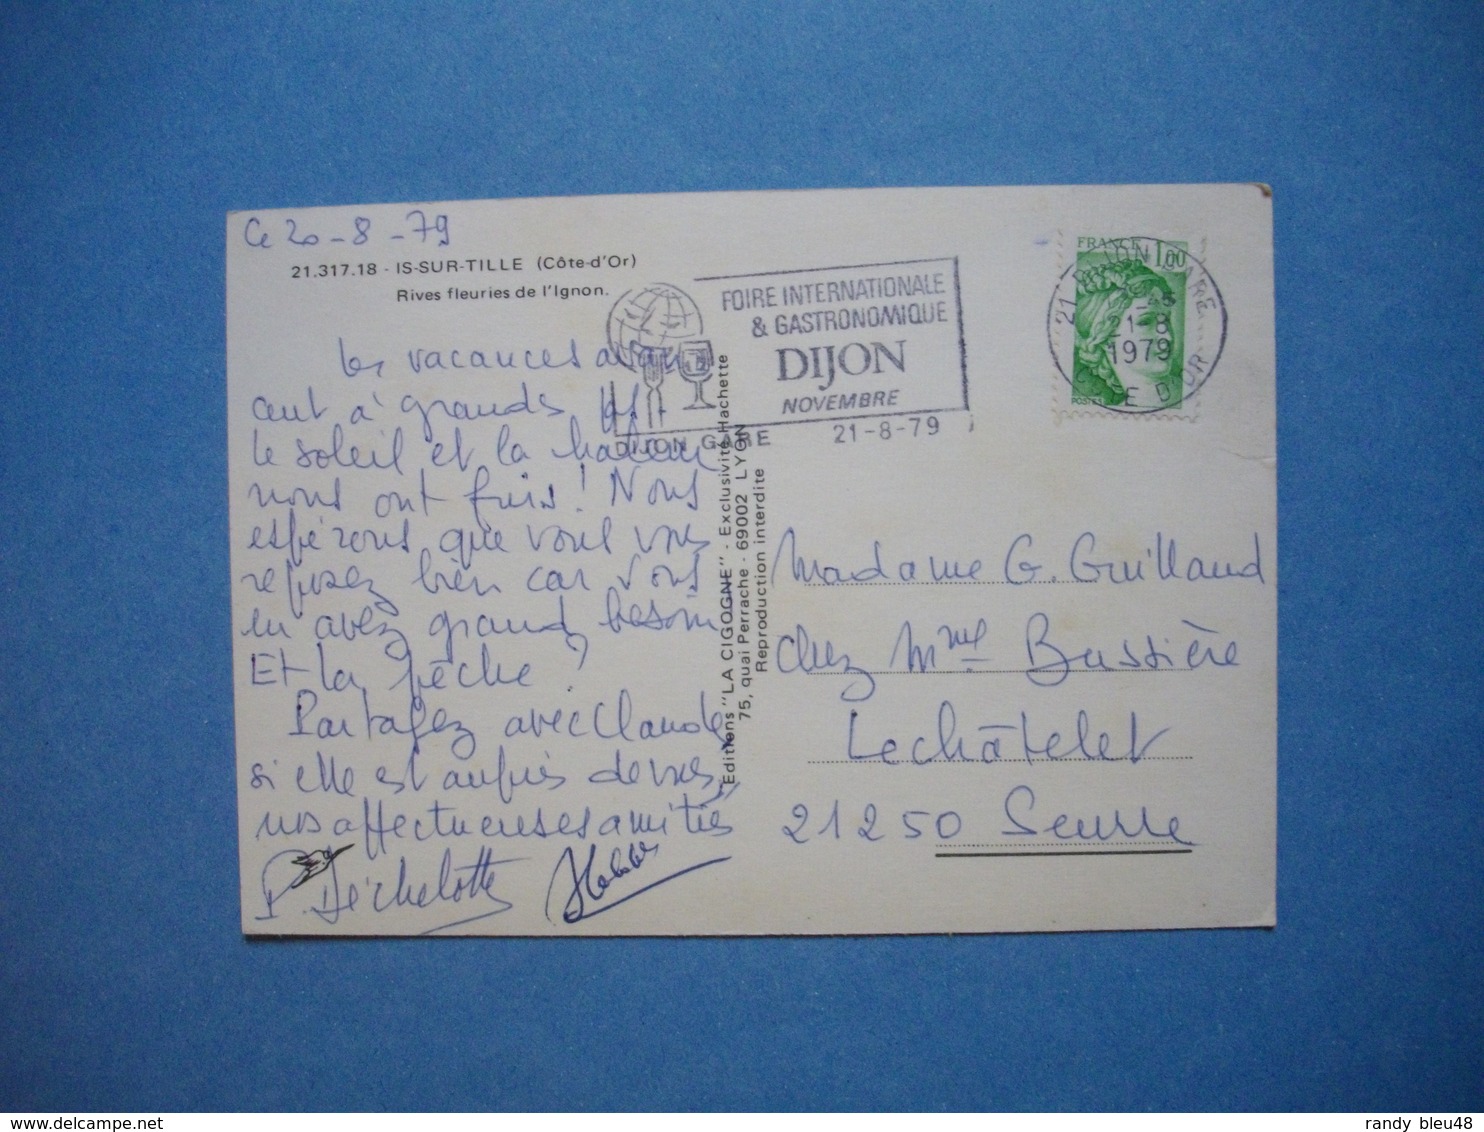 Ce 20-8-79
21.317.18 - IS-SUR-TILLE (Côte-d'Or)
Rives fleuries de l'Ignon.
Les vacances avan
cent à grands
le soleil et la chaleur
nous ont fuis! Nous
espérons que vous vous
reposez bien car vous
en avez grand besoin
Et la pêche ?
Partagez avec Claude
si elle est auprès de vous,
nos affectueuses amitiés
FOIRE INTERNATIONALE
& GASTRONOMIQUE
DIJON
NOVEMBRE
DIJON GARE
21-8-79
FRANCE 1,00
POSTES
21 DIJON GARE
21-8
1979
COTE D'OR
Editions "LA CIGOGNE" - Exclusivité Hachette
75, quai Perrache - 69002 LYON
Reproduction interdite
Madame G. Guilland
chez Mme Bussière
Lechâtelet
21250 Seurre
randy_bleu48